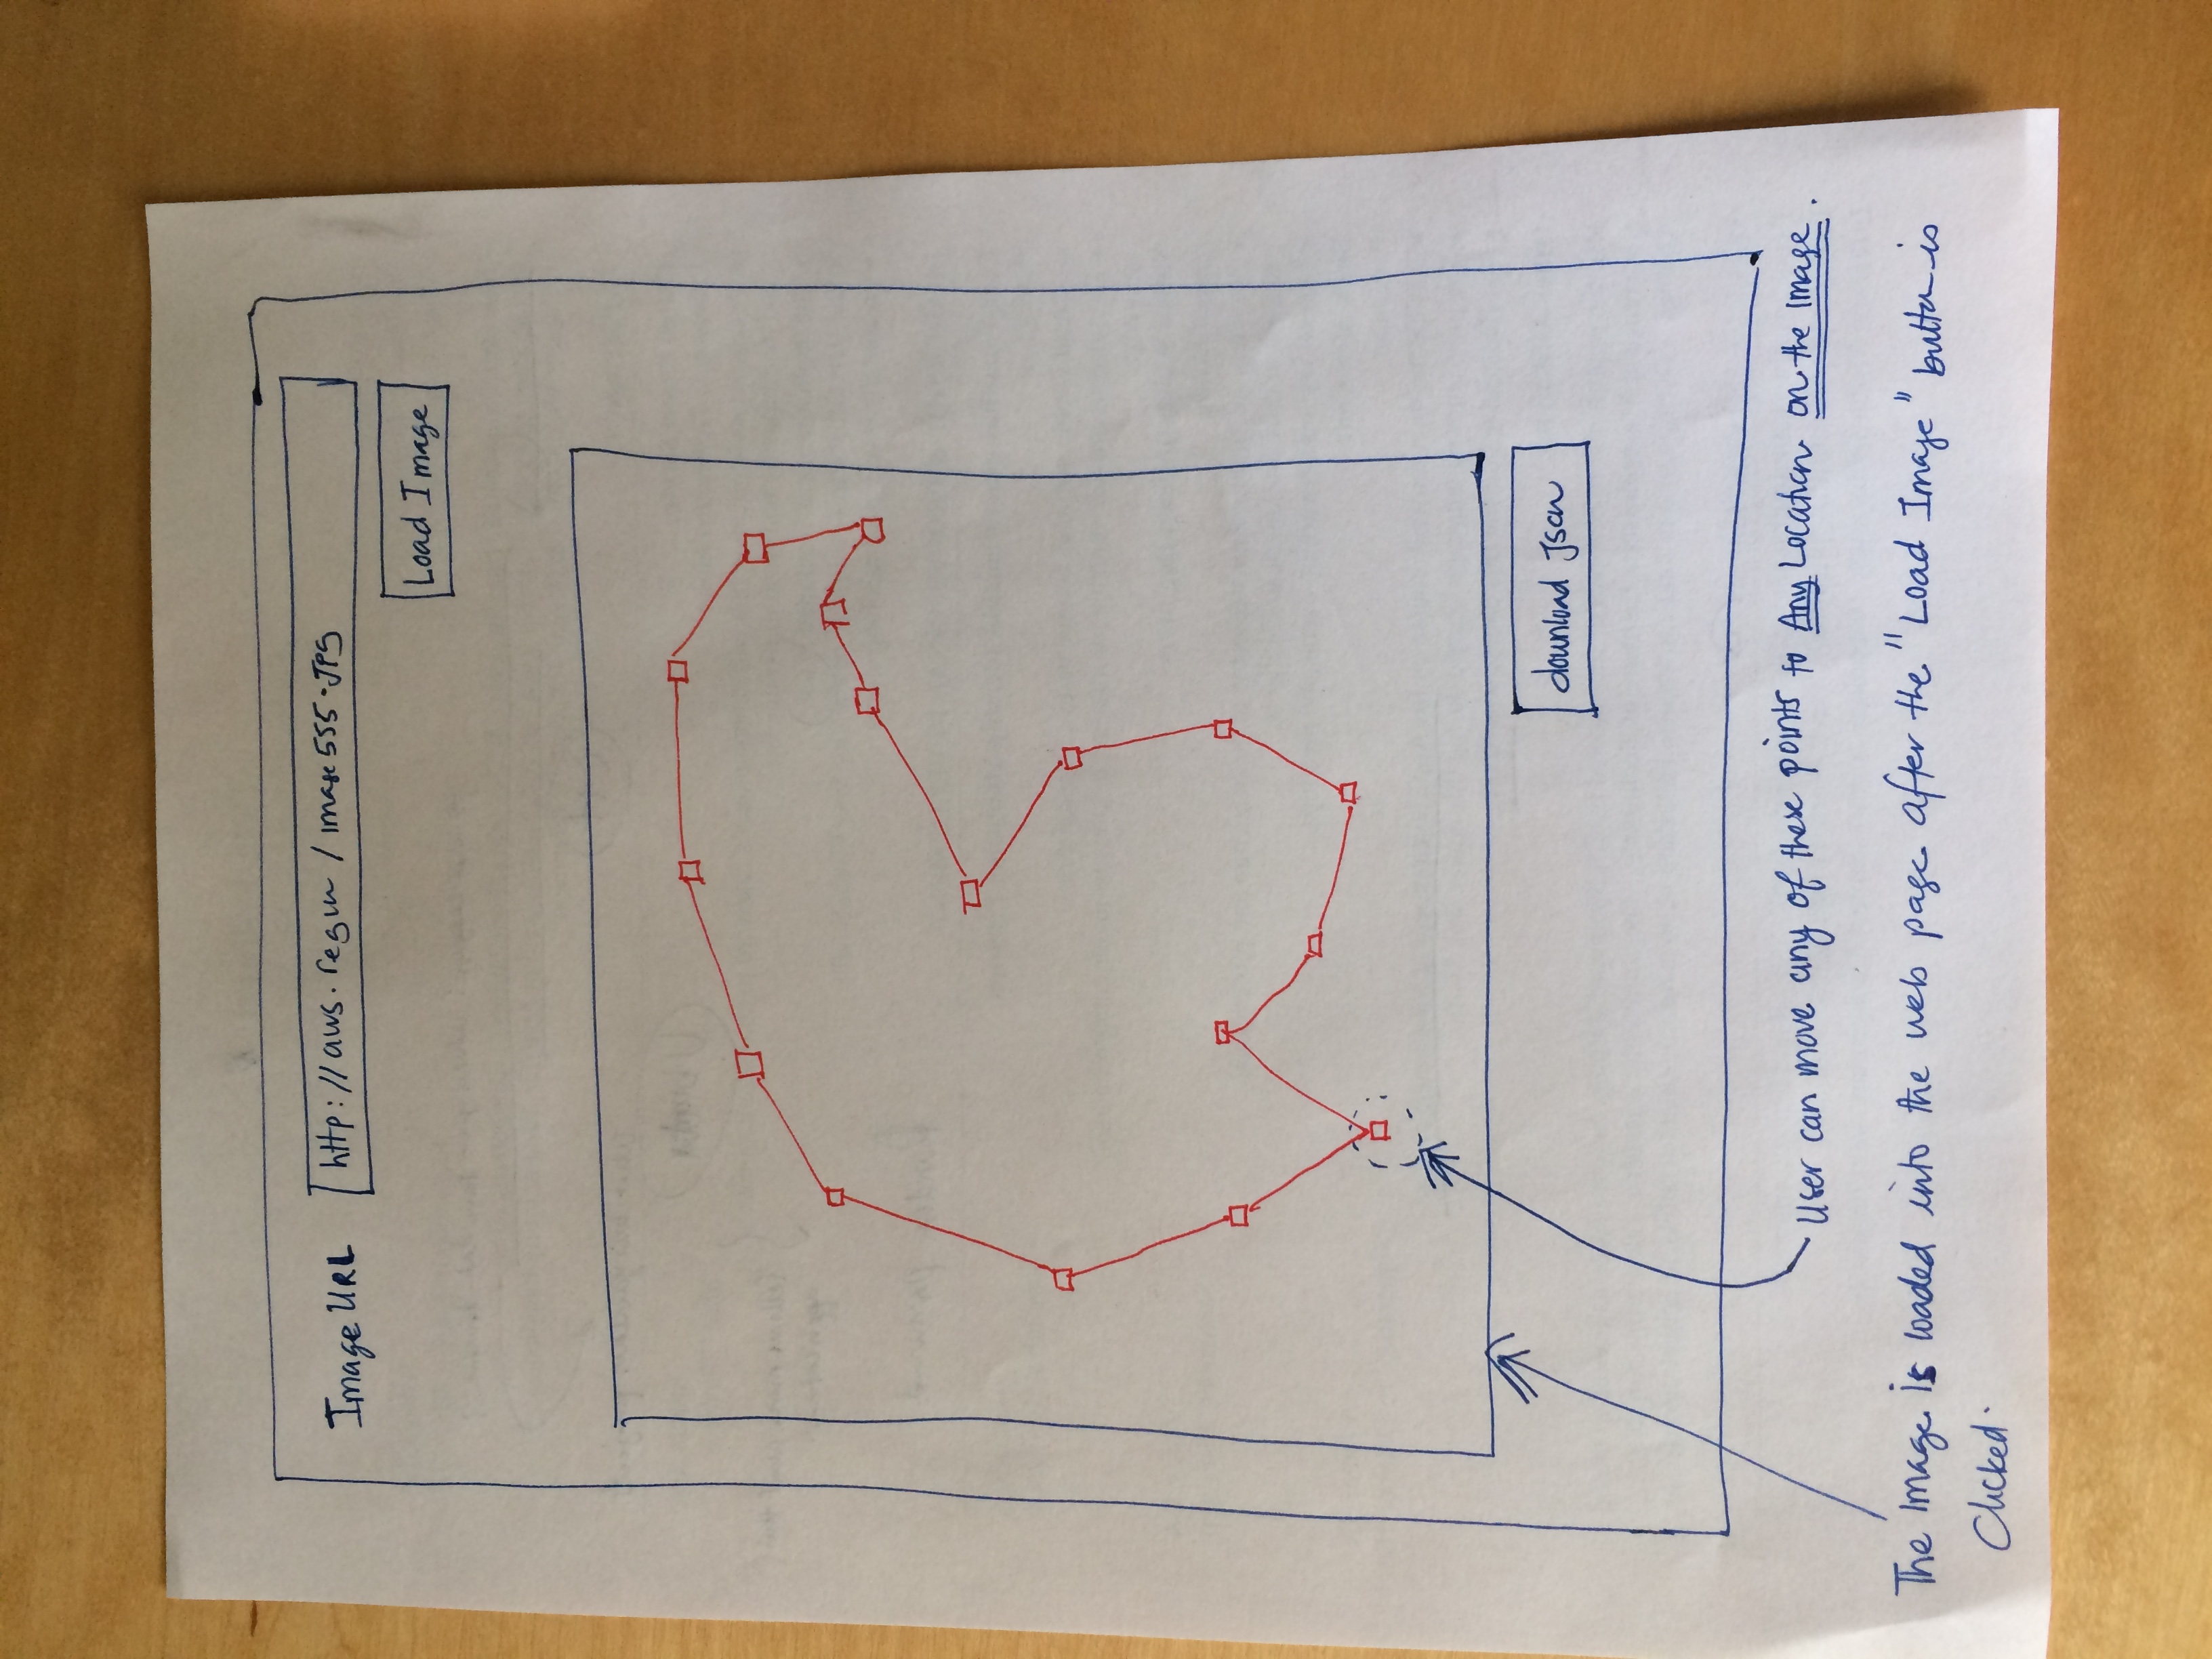 Image URL
http://aws.region/image555.jpg
Load Image
download json
User can move any of these points to Any Location on the image.
The image is loaded into the web page after the "Load Image" button is
Clicked.